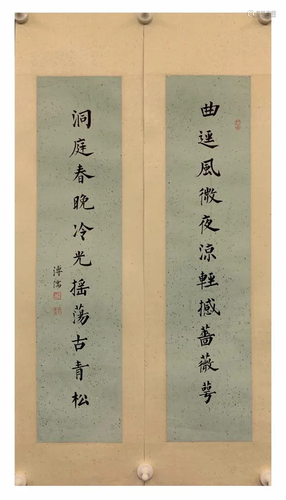 曲逕風微夜涼輕撼薔薇萼
洞庭春晚冷光摇蕩古青松
溥儒